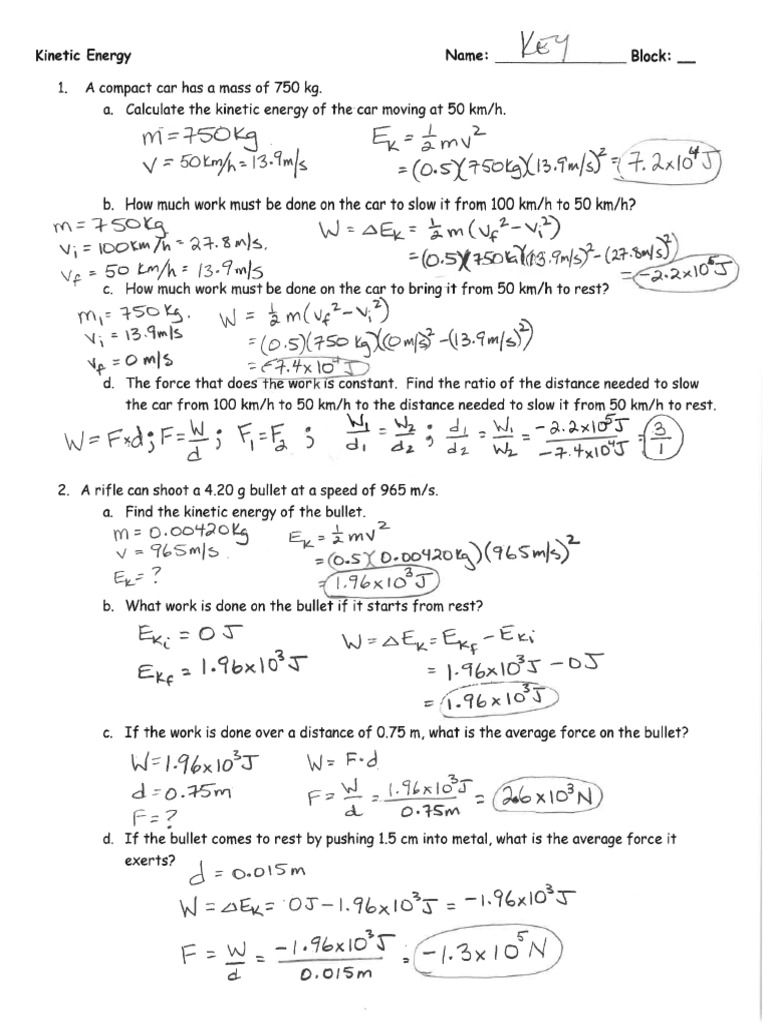 Kinetic Energy Name: KEY Block: __
1. A compact car has a mass of 750 kg.
a. Calculate the kinetic energy of the car moving at 50 km/h.
m = 750 kg E_K = 1/2 mv²
v = 50 km/h = 13.9 m/s = (0.5)(750 kg)(13.9 m/s)² = 7.2x10⁴ J
b. How much work must be done on the car to slow it from 100 km/h to 50 km/h?
m = 750 kg W = ΔE_K = 1/2 m(v_f² - v_i²)
v_i = 100 km/h = 27.8 m/s. = (0.5)(750 kg)(13.9 m/s)² - (27.8 m/s)²)
v_f = 50 km/h = 13.9 m/s = -2.2x10⁵ J
c. How much work must be done on the car to bring it from 50 km/h to rest?
m₁ = 750 kg. W = 1/2 m(v_f² - v_i²)
v_i = 13.9 m/s = (0.5)(750 kg)((0 m/s)² - (13.9 m/s)²)
v_f = 0 m/s = -7.4x10⁴ J
d. The force that does the work is constant. Find the ratio of the distance needed to slow
the car from 100 km/h to 50 km/h to the distance needed to slow it from 50 km/h to rest.
W = Fxd; F = W/d; F₁ = F₂; W₁/d₁ = W₂/d₂; d₁/d₂ = W₁/W₂ = -2.2x10⁵ J/-7.4x10⁴ J = 3/1
2. A rifle can shoot a 4.20 g bullet at a speed of 965 m/s.
a. Find the kinetic energy of the bullet.
m = 0.00420 kg E_K = 1/2 mv²
v = 965 m/s = (0.5)(0.00420 kg)(965 m/s)²
E_K = ? = 1.96x10³ J
b. What work is done on the bullet if it starts from rest?
E_Ki = 0 J W = ΔE_K = E_Kf - E_Ki
E_Kf = 1.96x10³ J = 1.96x10³ J - 0 J
= 1.96x10³ J
c. If the work is done over a distance of 0.75 m, what is the average force on the bullet?
W = 1.96x10³ J W = F·d
d = 0.75 m F = W/d = 1.96x10³ J/0.75m = 2.6x10³ N
F = ?
d. If the bullet comes to rest by pushing 1.5 cm into metal, what is the average force it
exerts?
d = 0.015 m
W = ΔE_K = 0 J - 1.96x10³ J = -1.96x10³ J
F = W/d = -1.96x10³ J/0.015 m = -1.3x10⁵ N